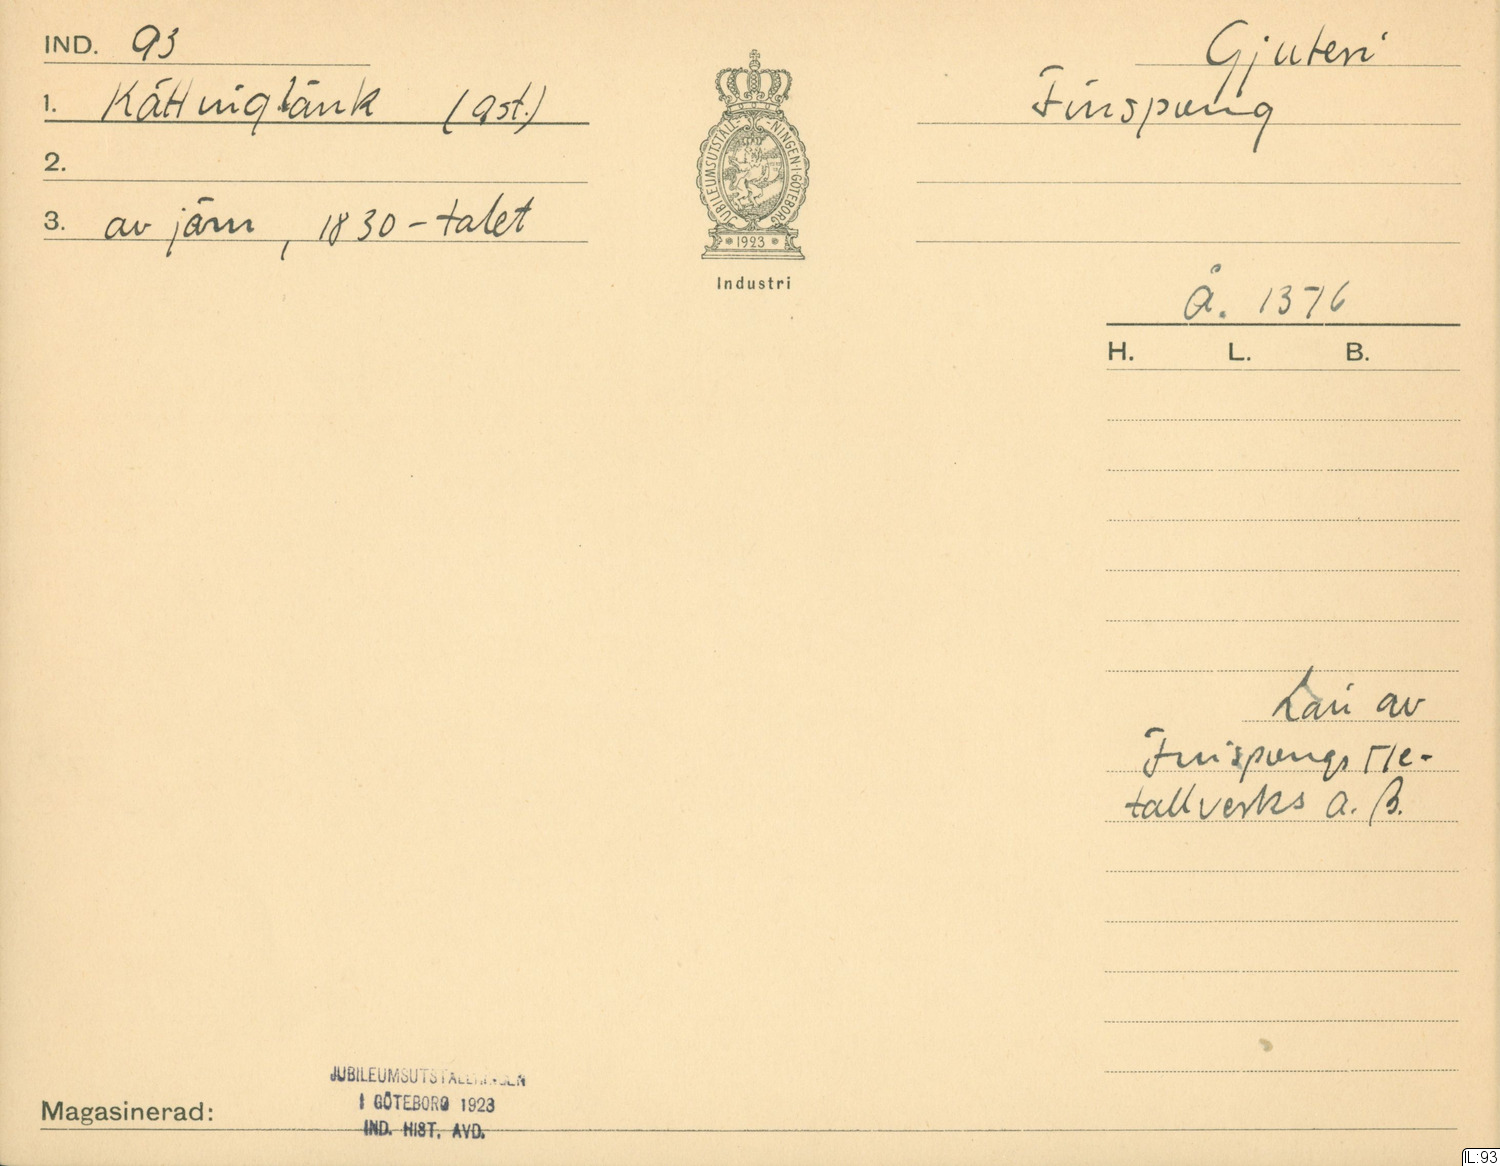 IND. 93
Gjuteri
1. Kättinglänk (gst.)
Finspong
2.
3. av järn, 1830-talet
JUBILEUMSUTSTÄLLNINGEN·I·GÖTEBORG
1923
Industri
Å. 1376
H. L. B.
Lån av
Finspongs Me-
tallverks A.B.
JUBILEUMSUTSTÄLLNINGEN
I GÖTEBORG 1923
IND. HIST. AVD.
Magasinerad:
IL:93